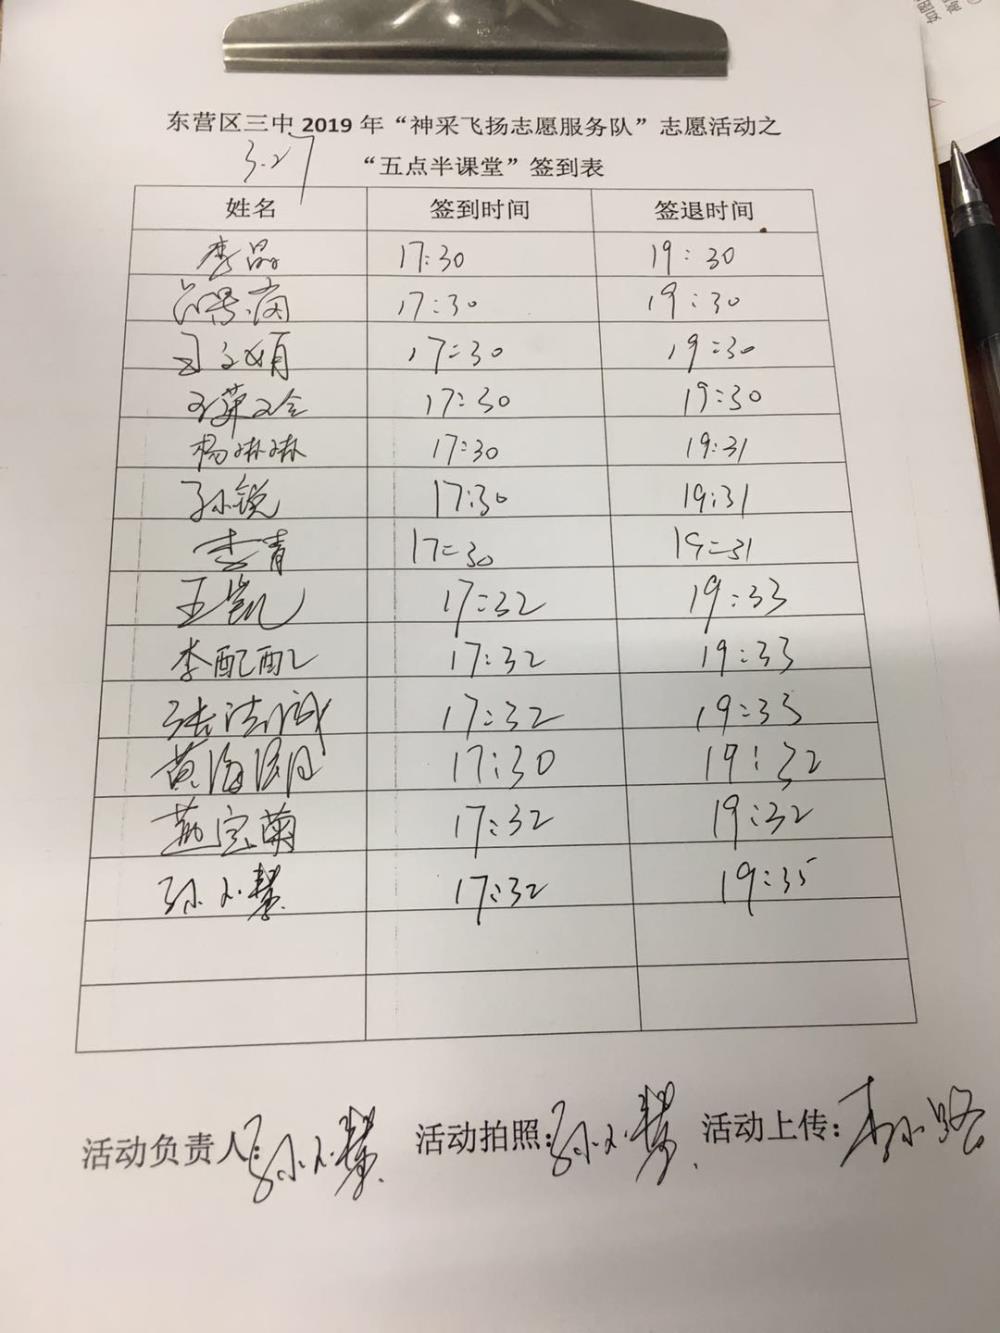 东营区三中 2019 年“神采飞扬志愿服务队”志愿活动之
3.27
“五点半课堂”签到表
姓名 签到时间 签退时间
李晶 17:30 19:30
17:30 19:30
17:30 19:30
17:30 19:30
杨琳琳 17:30 19:31
孙锐 17:30 19:31
李青 17:30 19:31
王凯 17:32 19:33
李配配 17:32 19:33
张洁诚 17:32 19:33
黄海 17:30 19:32
宝菊 17:32 19:32
孙小慧 17:32 19:35
活动负责人:孙小慧 活动拍照:孙小慧 活动上传:李小路